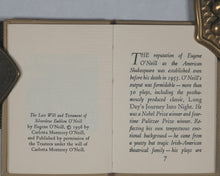 The Last Will and Testament of
Silverdene Emblem O'Neill
by Eugene O'Neill, © 1956 by
Carlotta Monterey O'Neill,
and Published by permission of
the Trustees under the will of
Carlotta Monterey O'Neill.
THE reputation of Eugene
O'Neill as the American
Shakespeare was established
even before his death in 1953. O'Neill's
output was formidable – more than
30 plays, including the posthu-
mously produced classic, Long
Day's Journey into Night. He was
a Nobel Prize winner and four-
time Pulitzer Prize winner. Re-
flecting his own tempestuous
emotional background – he came from
a youthy but tragic Irish-American
theatrical family – his plays are
7